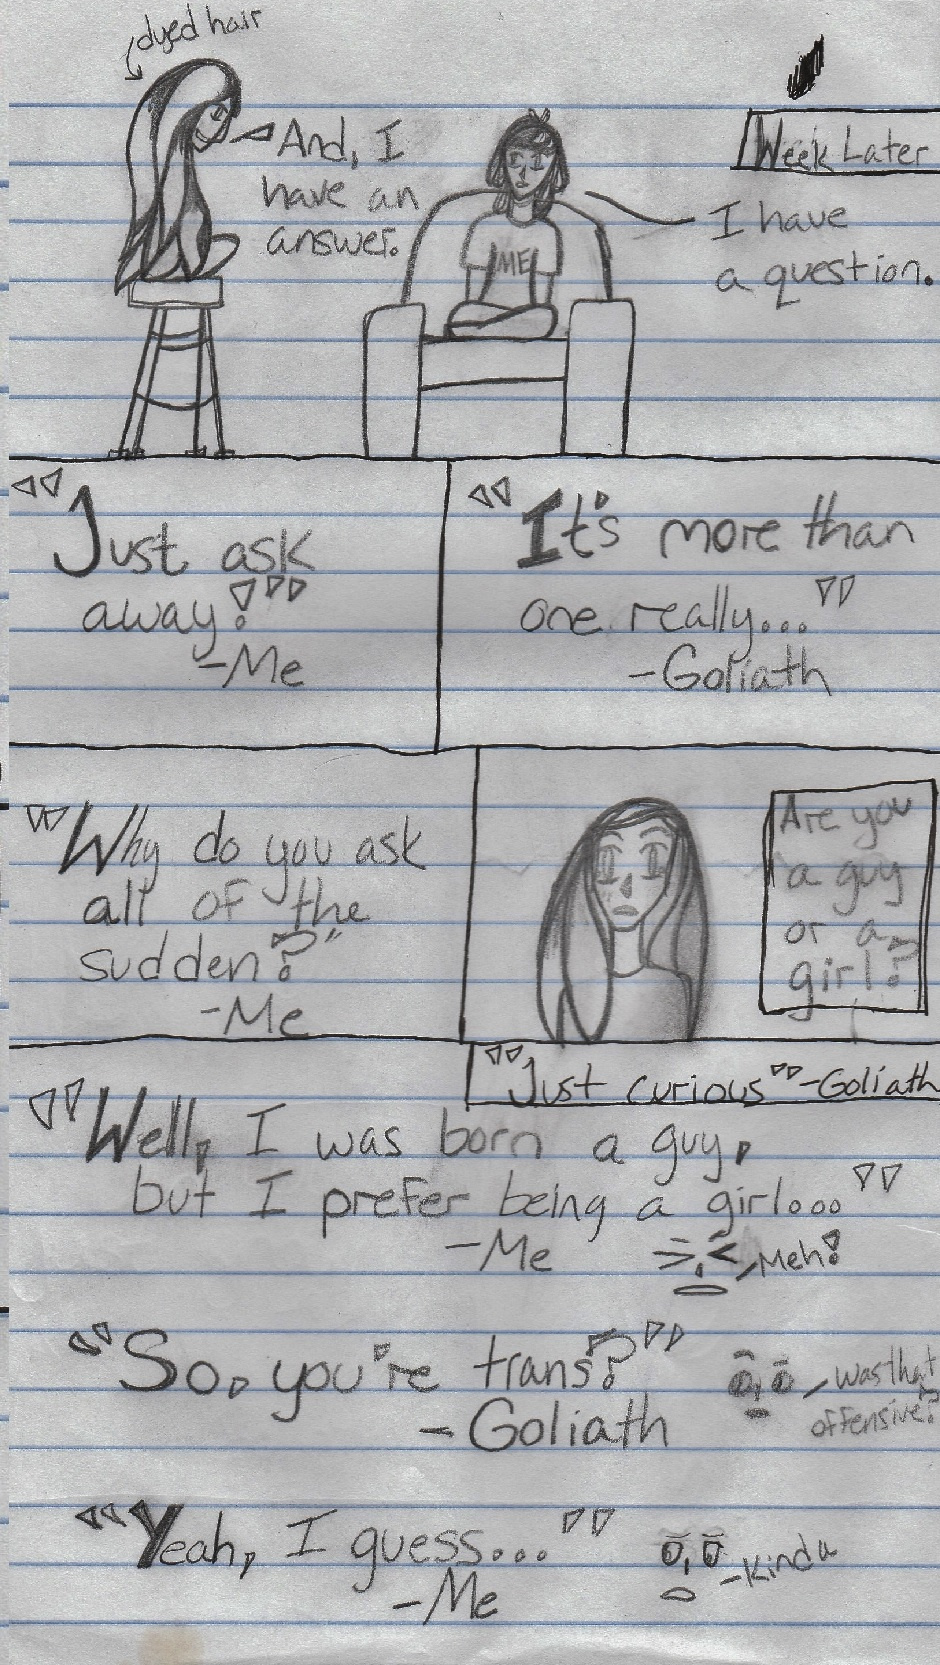 dyed hair
Week Later
I have
a question.
And, I
have an
answer.
ME
"Just ask
away!"
-Me
"It's more than
one really..."
-Goliath
"Why do you ask
all of the
sudden?"
-Me
Are you
a guy
or a
girl?
"Just curious"-Goliath
"Well, I was born a guy,
but I prefer being a girl..."
-Me
Meh!
"So, you're trans?"
-Goliath
was that
offensive?
"Yeah, I guess..."
-Me
-Kinda